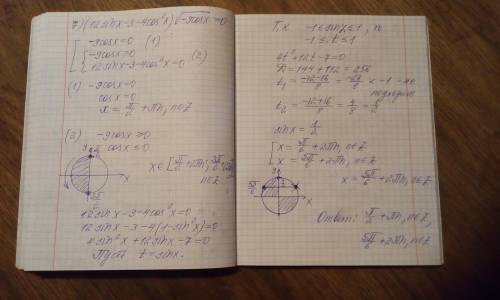 7) (12sinx-3-4cos²x)√-9cosx=0
[ -9cosx=0 (1)
{ -9cosx≥0
12sinx-3-4cos²x=0 (2)
(1) -9cosx=0
cosx=0
x=π/2+πn, n∈Z
(2) -9cosx≥0
cosx≤0
y π/2
x
n∈Z
12sinx-3-4cos²x=0
12sinx-3-4(1-sin²x)=0
4sin²x+12sinx-7=0
Пусть t=sinx.
Т.к. -1≤sinx≤1, то
-1≤t≤1
4t²+12t-7=0
D=144+112=256
t₁=(-12-16)/8=-28/8<-1-не
подходит
t₂=(-12+16)/8=4/8=1/2
sinx=1/2
[ x=π/6+2πn, n∈Z
x=5π/6+2πn, n∈Z
x=5π/6+2πn, n∈Z
5π/6
x
Ответ: π/2+πn, n∈Z,
5π/6+2πn, n∈Z